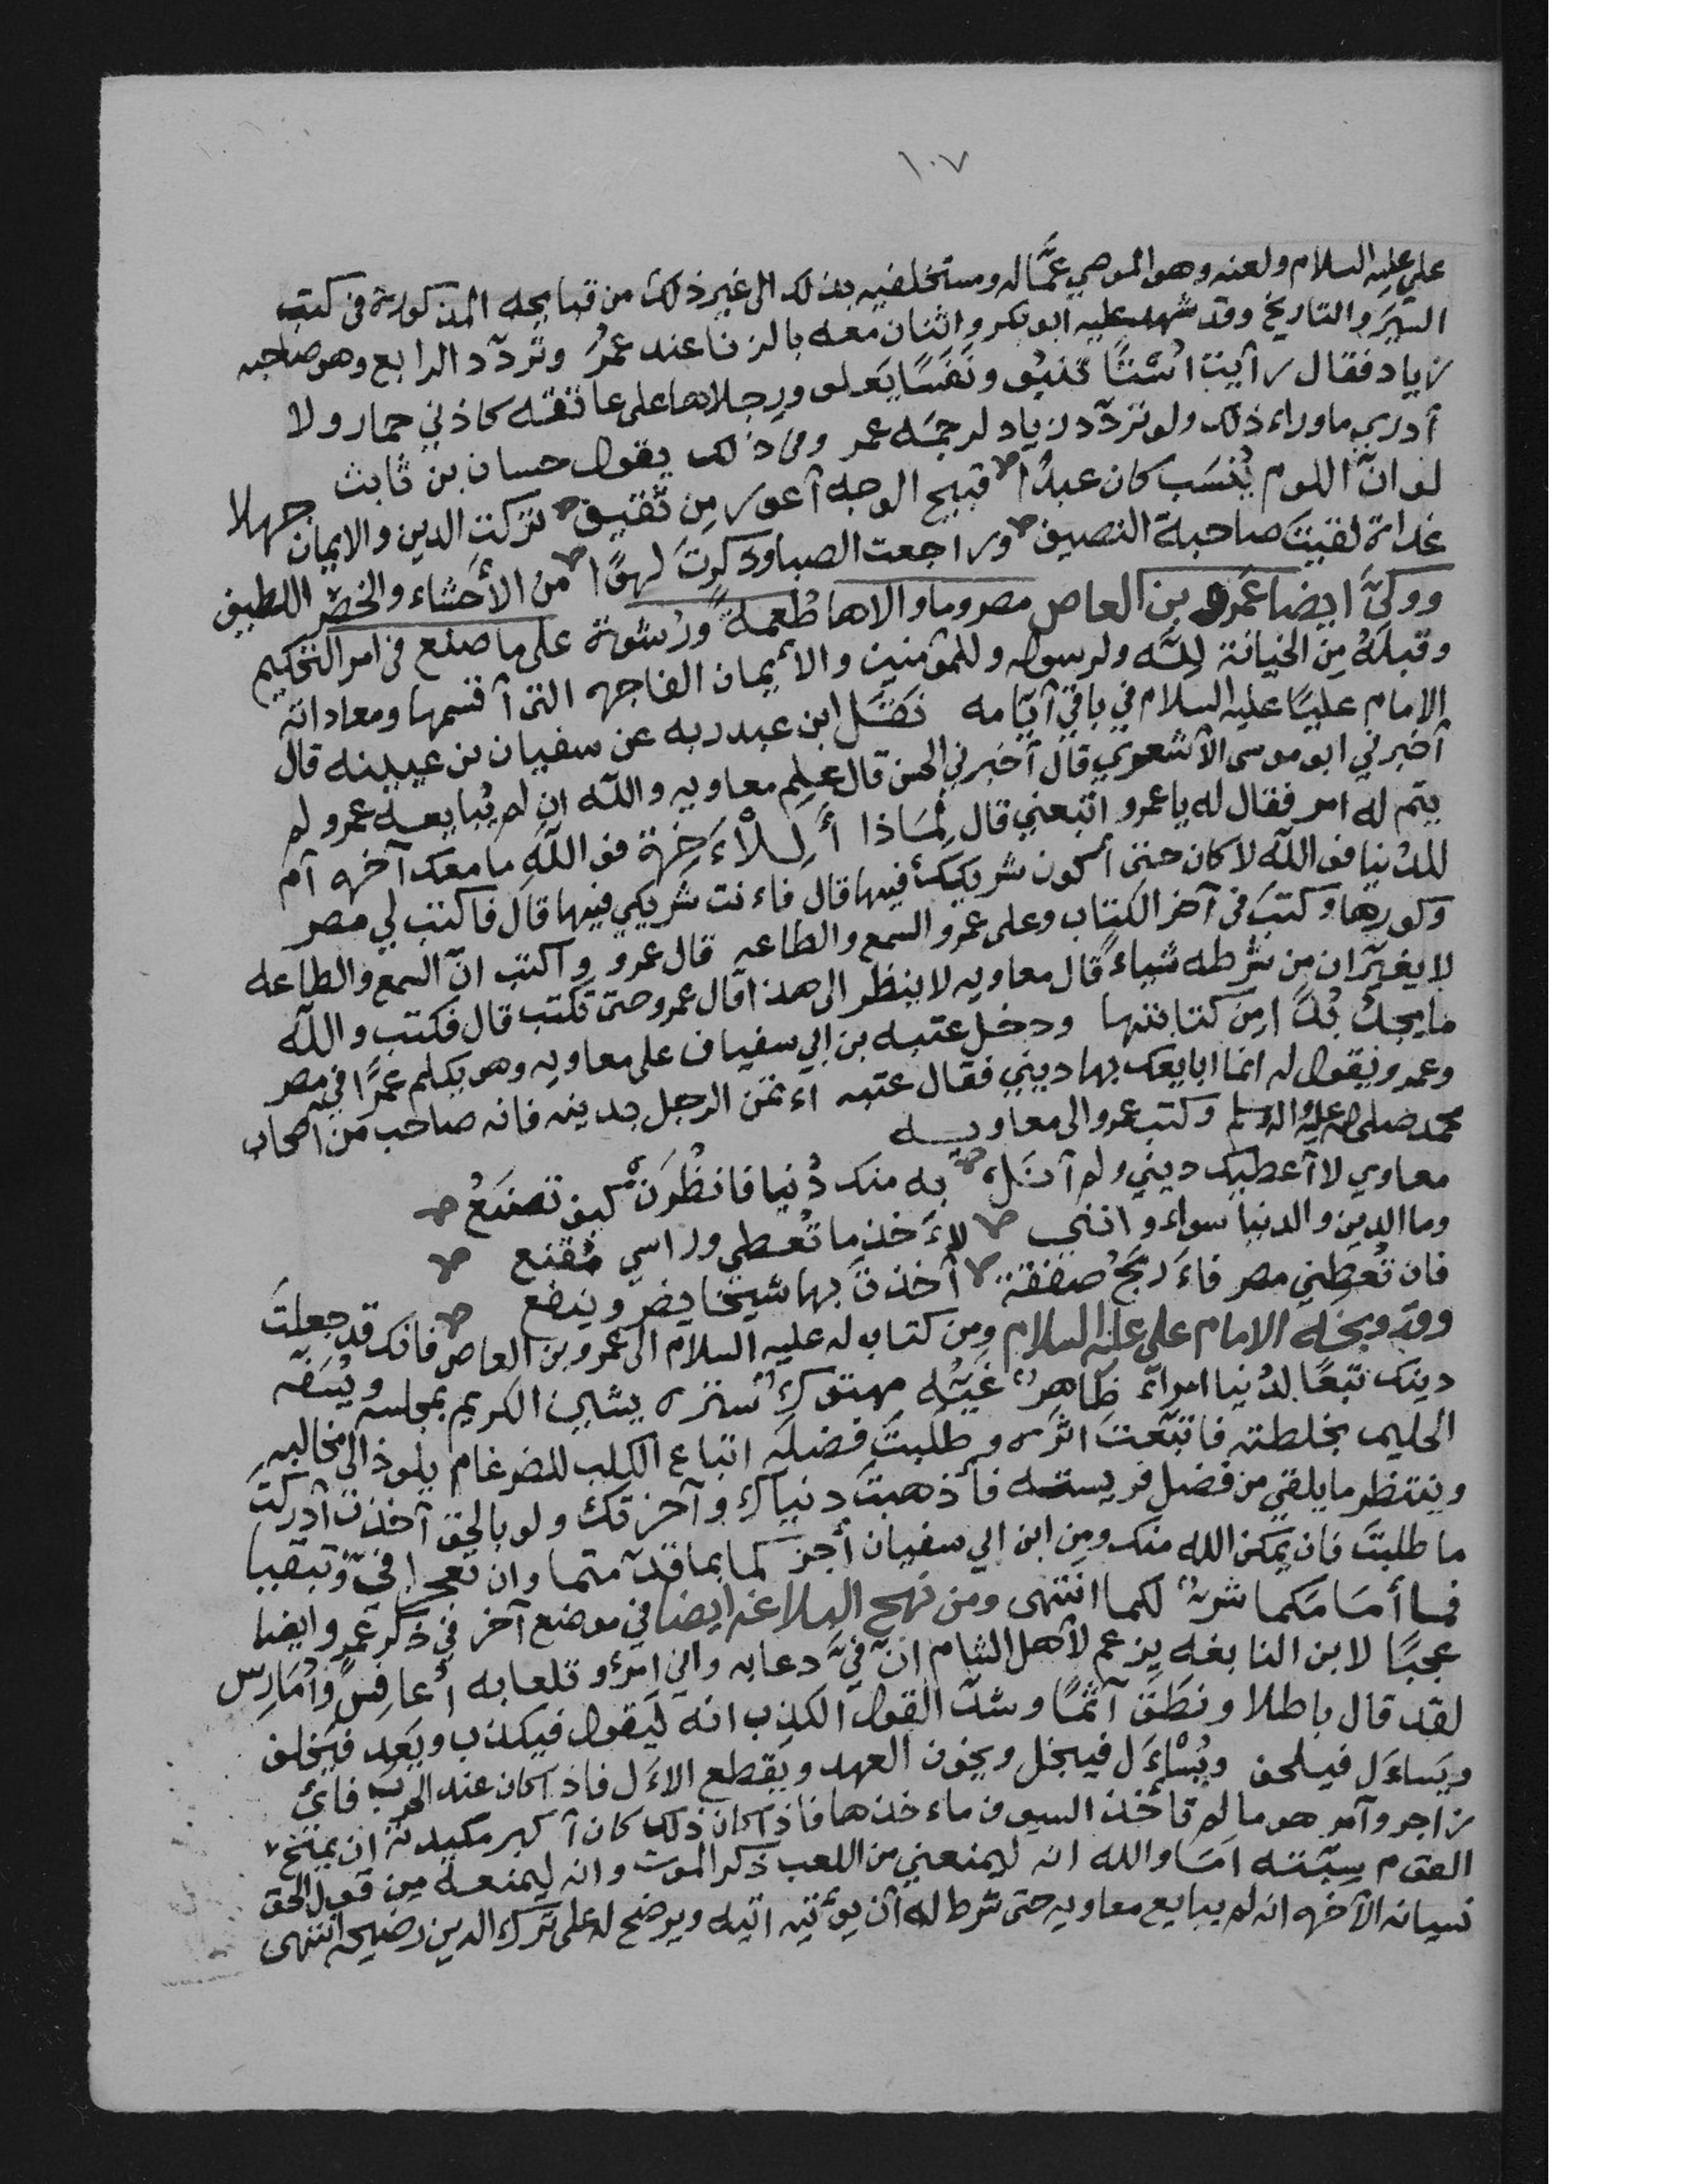 ١٠٧
علي عليه السلام ولعنه وهو الموصي عمَّاله ومستخلفيه بذلك الى غير ذلك من قبايحه المذكورة في كتب
السِيَر والتاريخ وقد شهد عليه ابو بكر واثنان معه بالزنا عند عمرُ وتردّد الرابع وهو صاحبه
زياد فقال رآيت اسْتًا تنبو ونَفَسًا يَعلو ورجلاها على عاتقه كاذني حمار ولا
أدري ماوراء ذلك ولو تردّد زياد لرجمَه عمر وفى ذلك يقول حسان بن ثابت
لو انّ اللوم يُنسَب كان عبدًا قبيح الوجه آعور مِن ثقيف تركت الدين والايمان جهلا
غداة لقيتَ صاحبة النصيف وراجعت الصبا وذكرتَ لهوًا من الأحشاء والخصر اللطيف
وولىَّ ايضا عَمرو بن العاص مصر وما والاها طُعمةً ورُشوة على ما صنع في امر التحكيم
وقبلَهُ مِن الخيانة لِلّه ولرسوله وللمؤمنين والأيمان الفاجره التى آقسمها ومعاداته
الامام عليًا عليه السلام في باقي آيّامه نَقَل ابن عبد ربه عن سفيان بن عيينه قال
آخبرني ابو موسى الآشعري قال آخبرني الحسن قال علِم معاويه والله ان لم يُبايعه عمرو لم
يتم له امر فقال له يا عمرو اتبعني قال لمَاذا أَ لِلْآخِرة فو الله ما معك آخره آم
للدُنيا فو الله لا كان حتى أكون شريكك فيها قال فاءنت شريكي فيها قال فاكتب لي مصر
وكورها وكتبَ في آخر الكتاب وعلى عمرو السمع والطاعه قال عمرو واكتب انّ السمع والطاعه
لا يغيّران مِن شرطه شياءً قال معاويه لا ينظر الى هذا قال عمرو حتى تكتب قال فكتب والله
ما يجدُ بُدًّا مِن كتابتها ودخل عتبه بن ابي سفيان على معاويه وهو يكلم عمرًا في مصر
وعمرو يقول له انما ابايعك بها ديني فقال عتبه اءثمن الرجل بدينه فانه صاحب من اصحاب
محمد صلى الله عليه واله وسلم وكتب عمرو الى معاويه
معاوي لا آعطيك ديني ولم آنَل به منك دُنيا فانظُرَنْ كيف تصنَعُ
وما الدين والدنيا سواء وانني لآءَخذ ما تُعطي وراسي مُقنع
فان تُعطِني مصر فاءَربَحُ صفقة آخذتَ بها شيخا يضر وينفع
وقد وبخه الامام على عليه السلام ومن كتاب له عليه السلام الى عمرو بن العاص فانك قد جعلتَ
دينك تبَعًا لدُنيا امراءٍ ظَاهِرٌ غَيُّه مهتوكٌ سَتره يشين الكريم بمجلسه ويُسَفّه
الحليم بخلطته فاتبَعتَ اثَره وطَلبتَ فضلَه اتباع الكلب للضرغام يلوذ الى مخالبه
وينتظر ما يلقي من فضل فريسته فأذهبتَ دنياك وآخرتك ولو بالحق آخذت آدركتَ
ما طلبتَ فان يُمكن الله منك ومِن ابن ابي سفيان أجزكما بما قدّمتما وان تعجزا في وتبقيا
فما أمَامَكما شرٌ لكما انتهى ومن نهج البلاغه ايضا في موضع آخر في ذكر عمرو ايضا
عجبًا لابن النابغه يزعم لآهل الشام انّ فيَّ دعابه واني امرُؤ تلعابه أعافِسُ وأُمَارِس
لقد قال باطلا ونطَقَ آثمًا وشرّ القول الكذب انه ليَقول فيكذب ويَعِد فيَخلف
ويَساءَل فيلحف ويُسْاءَل فيبخل ويخون العهد ويَقطع الاءَل فاذا كان عند الحرب فايُّ
زاجر وآمر هو ما لم تأخذ السيوف ماءخذها فاذا كان ذلك كان آكبر مكيدته ان يمنح
القوم سِبّته امَا والله انه ليمنعني من اللعب ذكر الموت وانه ليمنعه مِن قول الحق
نسيانه الآخره انه لم يبايع معاويه حتى شرط له آن يؤتيه اتيه ويرضخ له على ترك الدين رضيخه انتهى